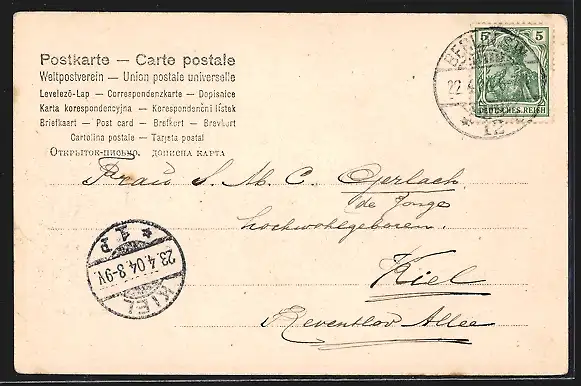 Postkarte — Carte postale
Weltpostverein — Union postale universelle
Levelező-Lap — Correspondenzkarte — Dopisnice
Karta korespondencyjna — Korespondenční lístek
Briefkaart — Post card — Brefkort — Brevkort
Cartolina postale — Tarjeta postal
Открытое письмо. дописна карта
5 5
DEUTSCHES REICH
BERLIN S.W.
22.4.
* 12
Frau S. M. C. Gerlach
de Jonge
hochwohlgeboren.
Kiel
Reventlov Allee
* 1 P
23.4.04.3-9V.
KIEL